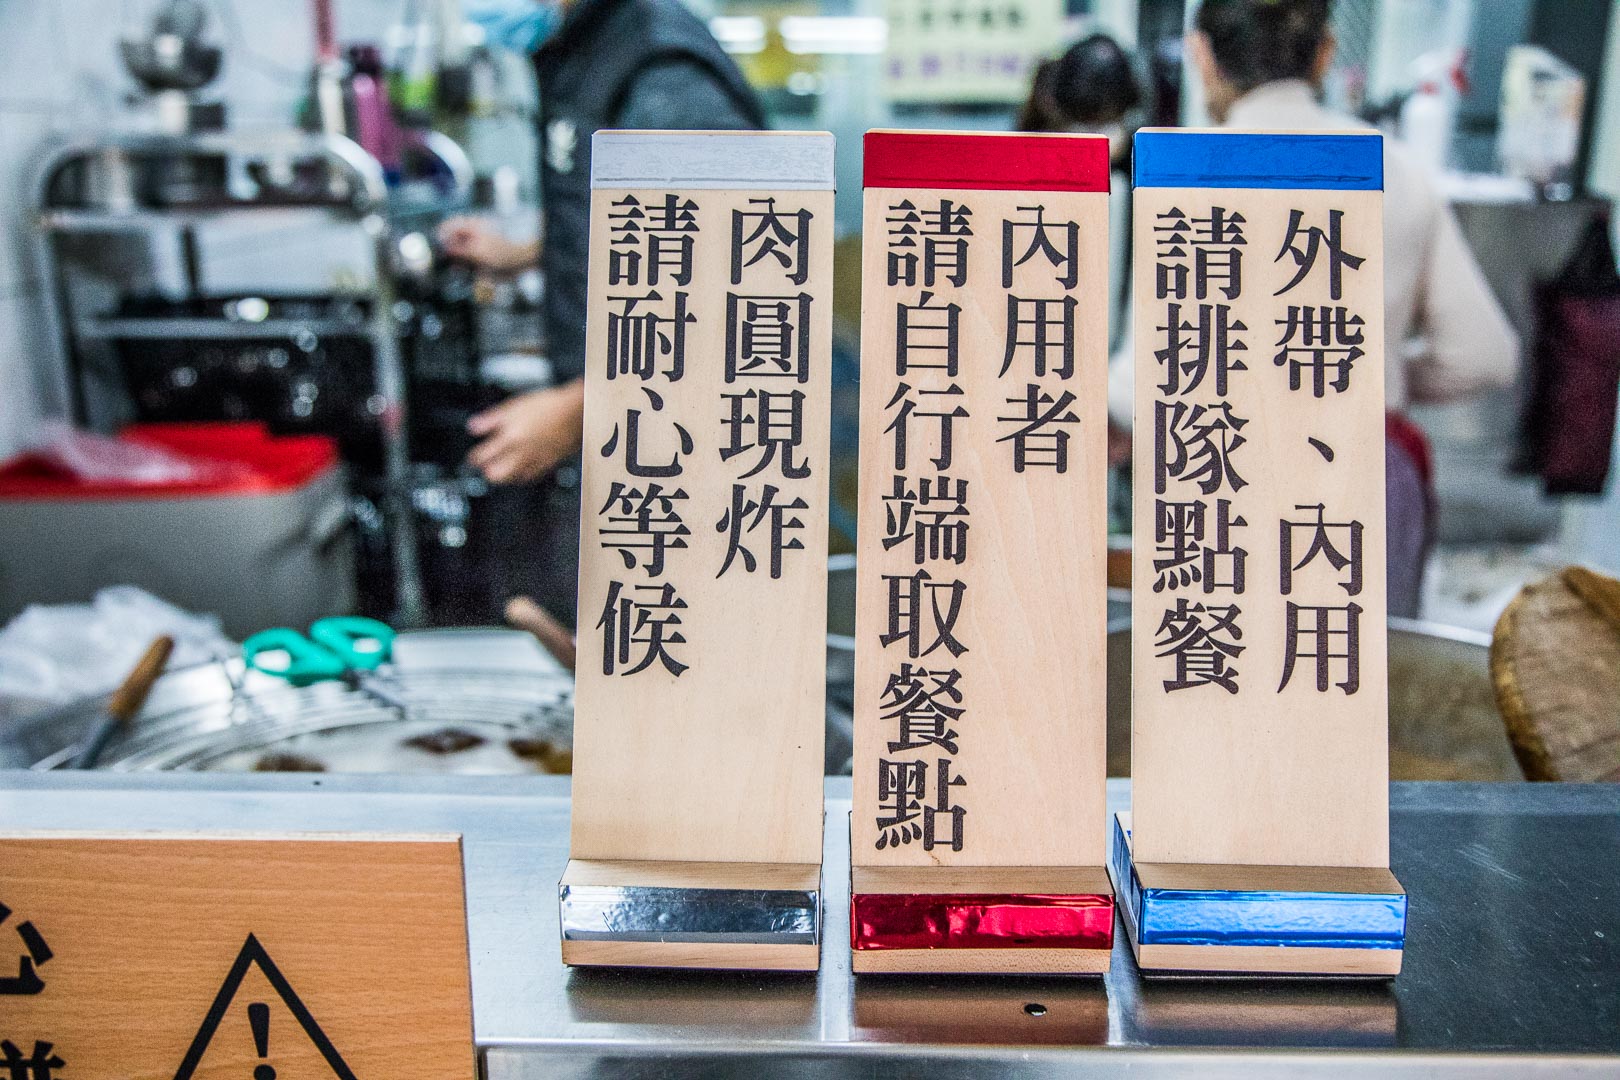 外帶、內用
請排隊點餐
內用者
請自行端取餐點
肉圓現炸
請耐心等候
心
!